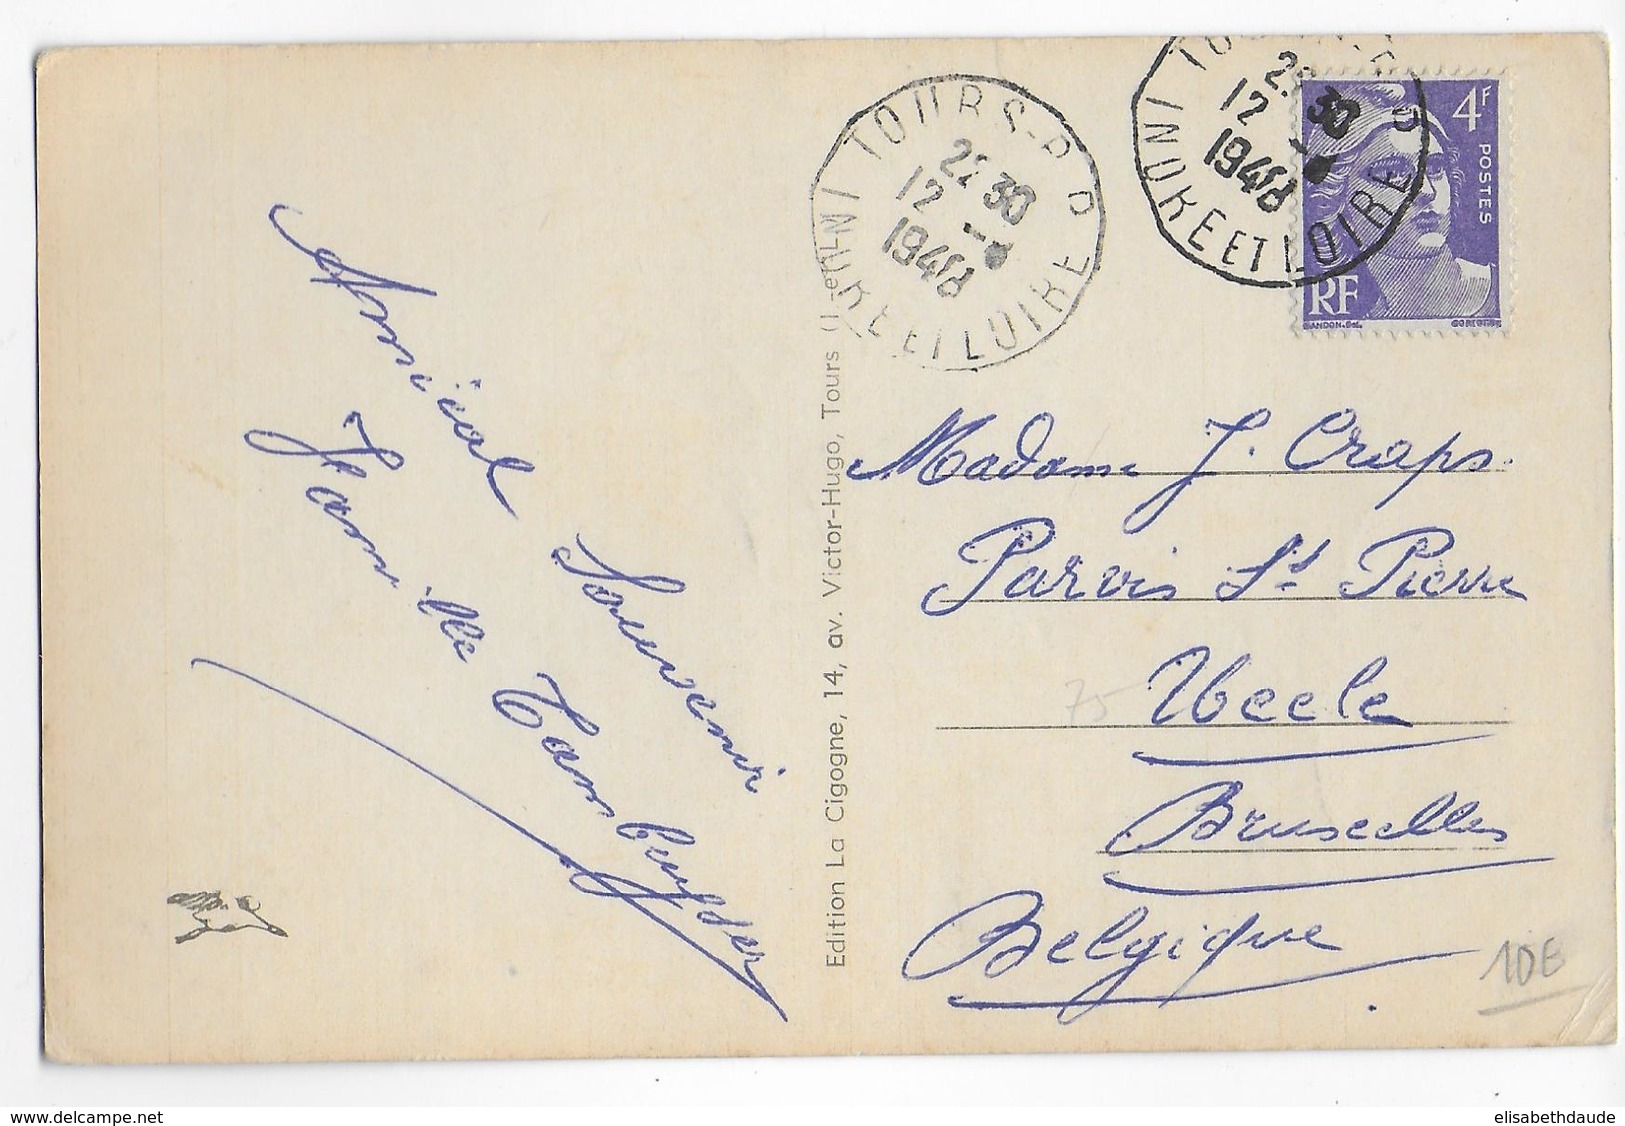 TOURS-R.P.
22 30
12 -
1948
INDRE ET LOIRE
TOURS-R.P.
22 30
12 -
1948
INDRE ET LOIRE
4F
POSTES
RF
GANDON-DEL.
Amical Souvenir
Famille
Edition La Cigogne, 14, av. Victor-Hugo, Tours (I.-et-L.)
Madame J. Craps.
Parvis St Pierre
75
Uccle
Bruxelles
Belgique
10E
www.delcampe.net
elisabethdaude